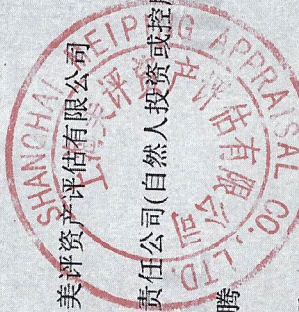 美评资产评估有限公司
责任公司(自然人投资或控
腾
SHANGHAI MEIPING APPRAISAL CO., LTD.
上海美评资产评估有限公司